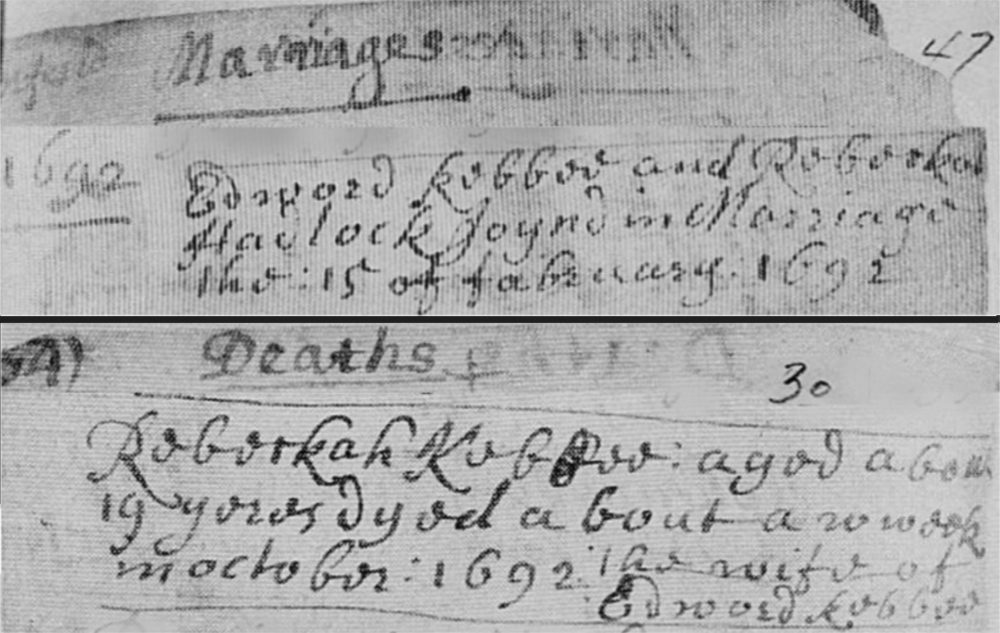 Marriages
47
1692
Edword Kebbee and Rebeckah
Hadlock Joynd in Marriage
the : 15 of fabruary : 1692
Deaths
30
Rebeckah Kebbee : aged about
19 yeres dyed a bout a w week
in october : 1692 : the wife of
Edword Kebbee